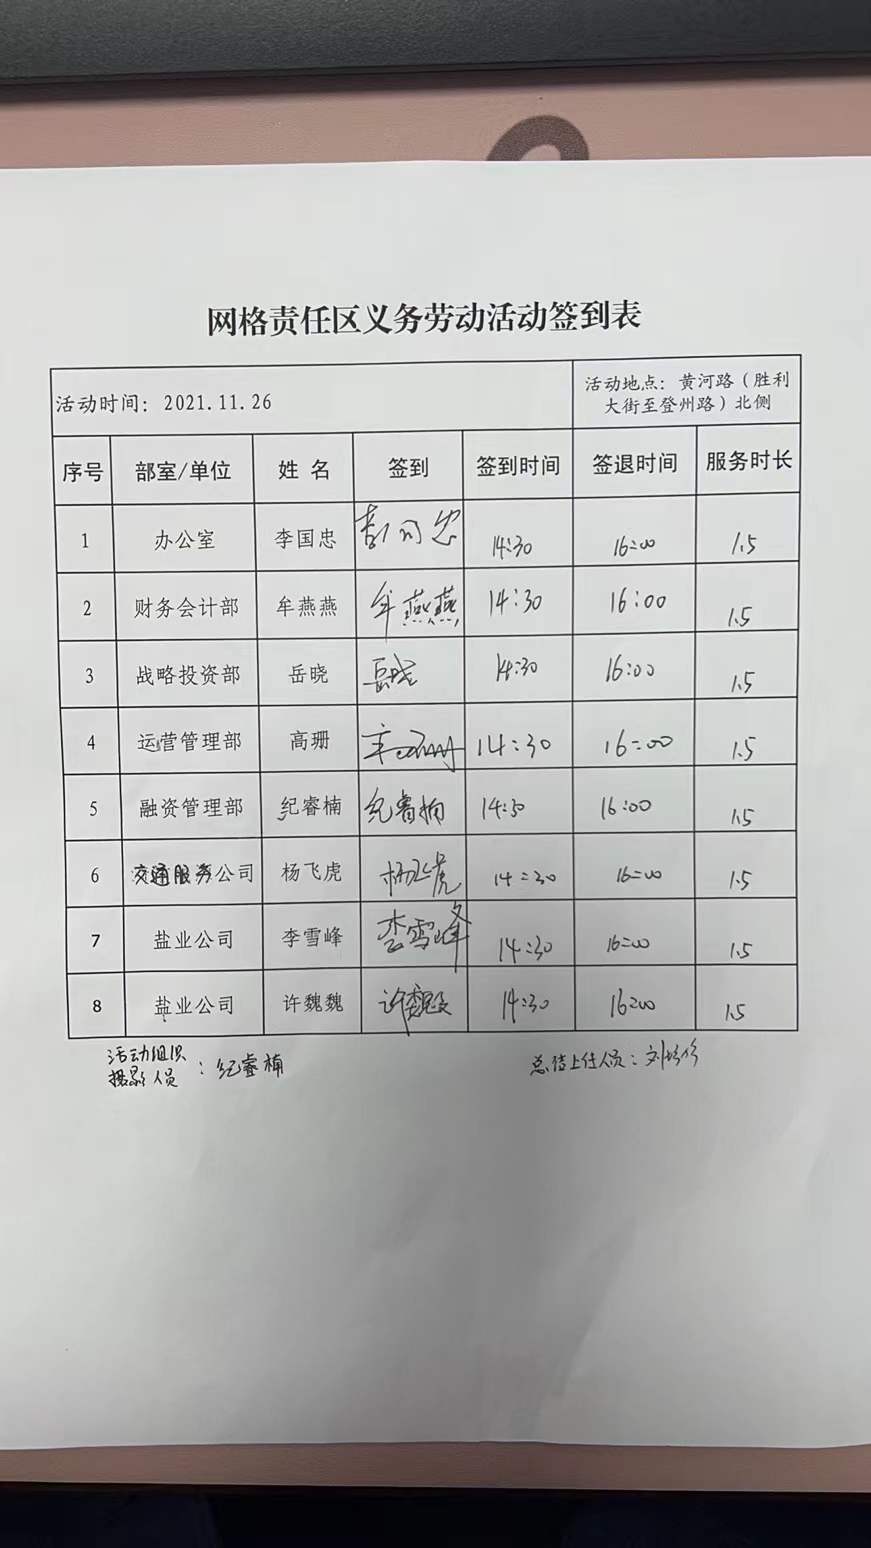 网格责任区义务劳动活动签到表
活动时间：2021.11.26
活动地点：黄河路（胜利
大街至登州路）北侧
序号 部室/单位 姓 名 签到 签到时间 签退时间 服务时长
1 办公室 李国忠 14:30 16:00 1.5
2 财务会计部 牟燕燕 牟燕燕 14:30 16:00 1.5
3 战略投资部 岳晓 岳晓 14:30 16:00 1.5
4 运营管理部 高珊 14:30 16:00 1.5
5 融资管理部 纪睿楠 纪睿楠 16:00 1.5
6 交通服务公司 杨飞虎 杨飞虎 14:30 16:00 1.5
7 盐业公司 李雪峰 李雪峰 14:30 16:00 1.5
8 盐业公司 许魏魏 许魏魏 14:30 16:00 1.5
活动组织
摄影人员：纪睿楠
人员：刘